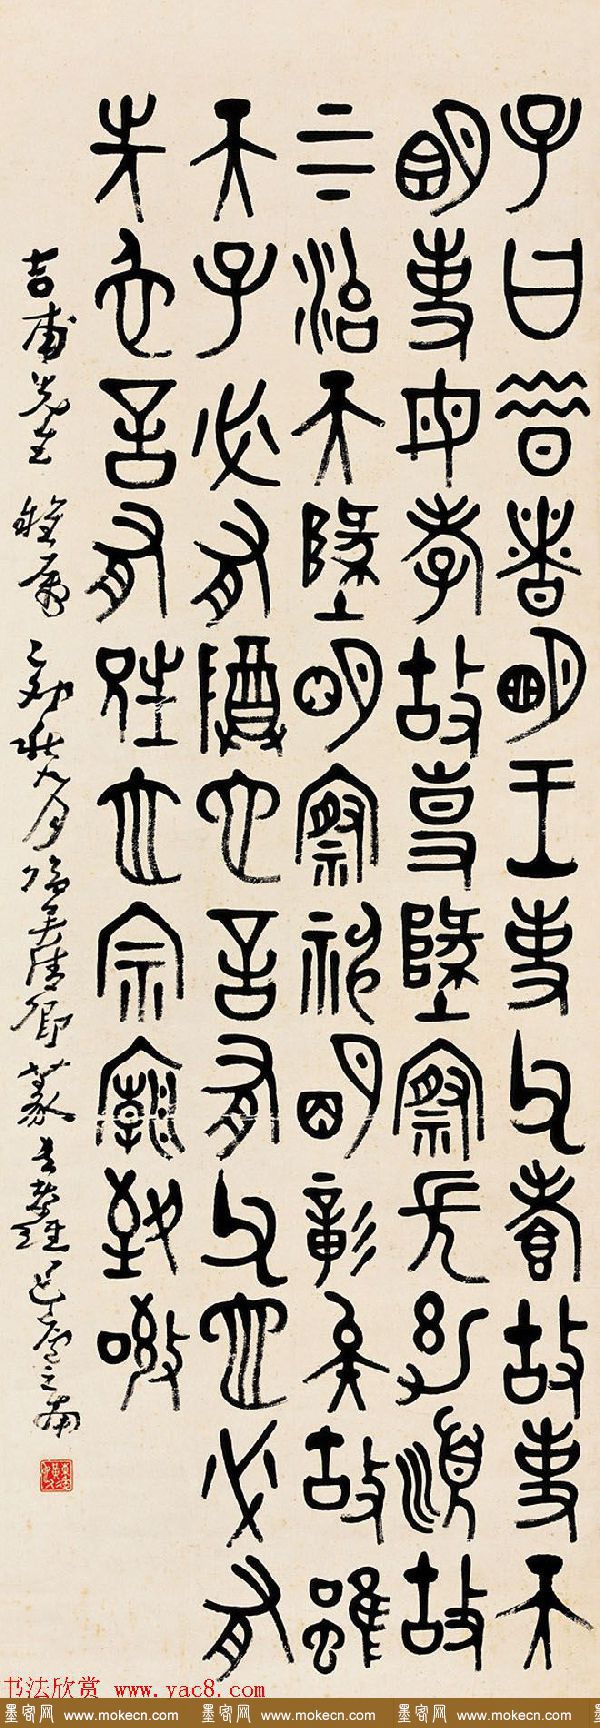 子曰昔者明王事父孝故事天
明事母孝故事地察長幼順故
上下治天地明察神明彰矣故雖
天子必有尊也言有父也必有
先也言有兄也宗廟致敬
吉甫先生雅屬 秋九月臨吳清卿篆書
书法欣赏 www.yac8.com
墨客网 www.mokecn.com 墨客网 www.mokecn.com 墨客网 www.mokecn.com